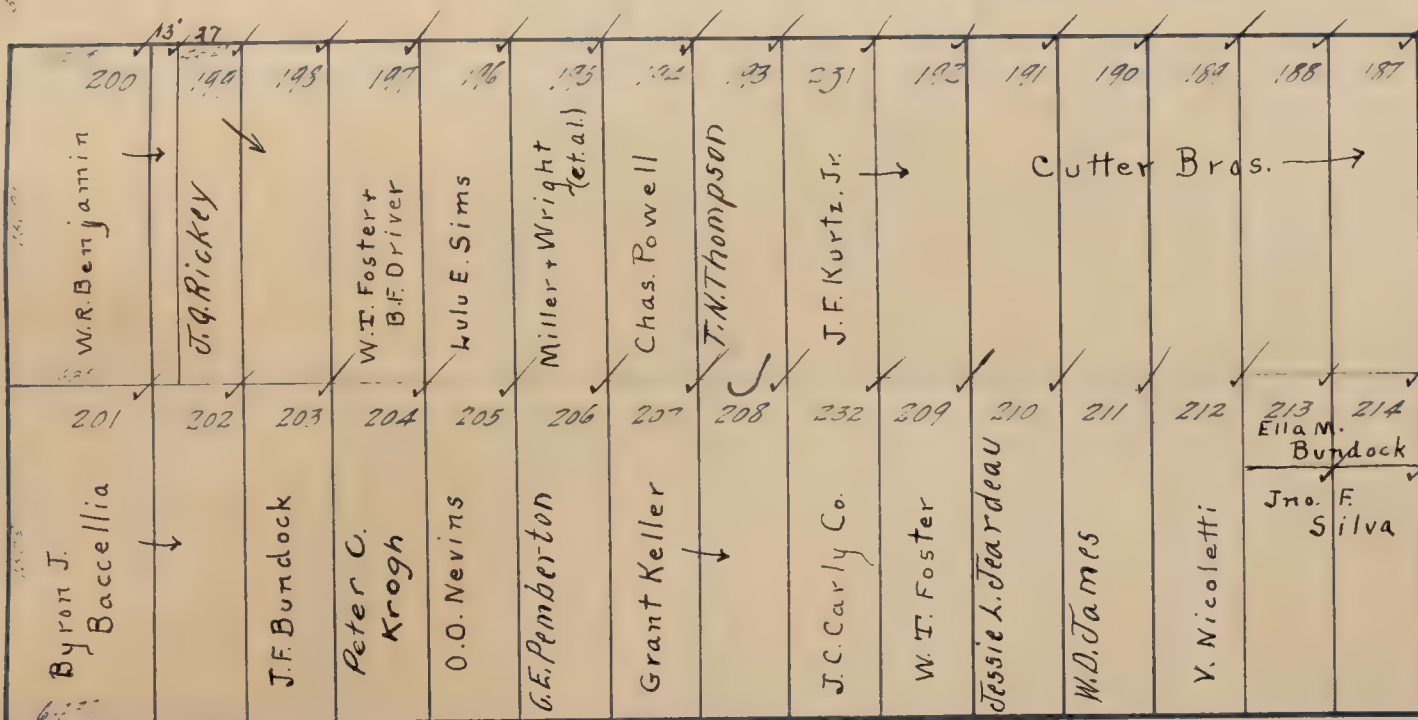 13' 27
200 199 198 197 196 195 194 193 231 192 191 190 189 188 187
W.R. Benjamin →
J.Q. Rickey
W.T. Foster +
B.F. Driver
Lulu E. Sims
Miller + Wright
(et.al.)
Chas. Powell
T.N. Thompson
J.F. Kurtz. Jr. →
Cutter Bros. →
201 202 203 204 205 206 207 208 232 209 210 211 212 213 214
Byron J.
Baccellia →
J.F. Bundock
Peter C.
Krogh
O.O. Nevins
G.E. Pemberton
Grant Keller →
J.C. Carly Co.
W.T. Foster
Jessie L. Jeardeau
W.D. James
V. Nicoletti
Ella M.
Bundock
Jno. F.
Silva